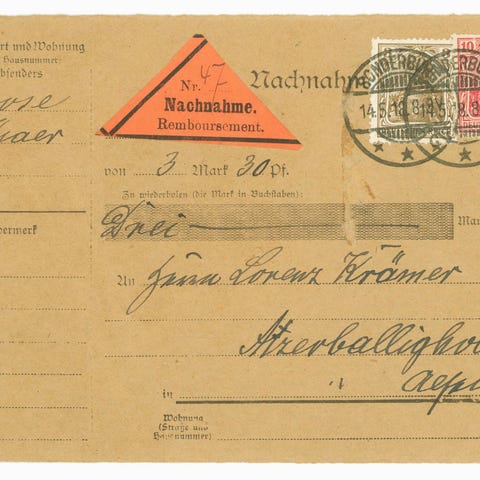 rt und Wohnung
Hausnummer)
bsenders
ose
permerk
Nr. 47
Nachnahme.
Remboursement.
Nachnahm
SONDERBURG
14.5.18.8
10
von 3 Mark 30 Pf.
Zu wiederholen (die Mark in Buchstaben):
Drei Mar
An Herrn Lorenz Krämer
Atzerballigho
in
Wohnung
(Straße und
Hausnummer)